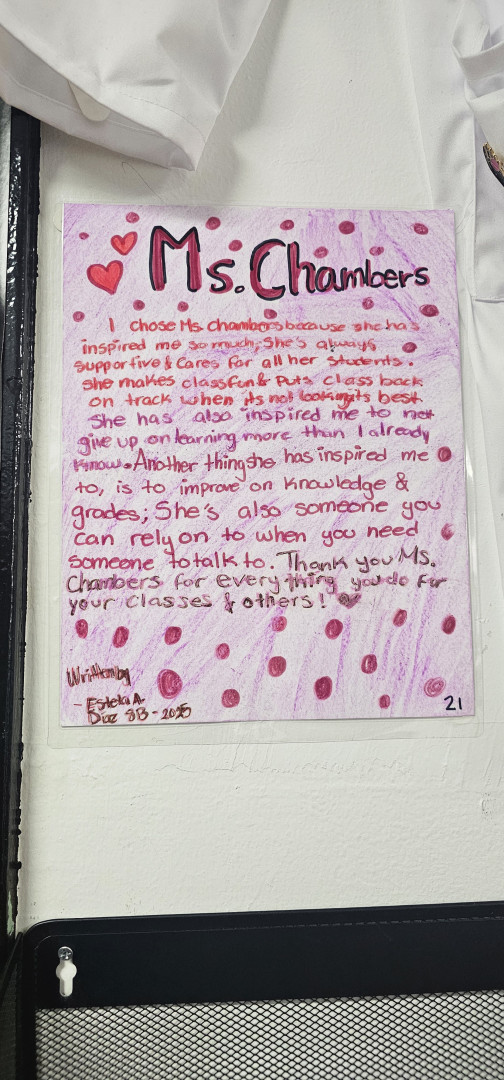 Ms. Chambers
I chose Ms. Chambers because she has
inspired me so much; She's always
supportive & Cares for all her Students.
she makes class fun & Puts class back
on track when its not looking its best.
She has also inspired me to not
give up on learning more than I already
know. Another thing she has inspired me
to, is to improve on knowledge &
grades; She's also someone you
can rely on to when you need
someone to talk to. Thank you Ms.
Chambers for everything you do for
your classes & others!
Written by
- Estela A.
Diaz 8B - 2025
21